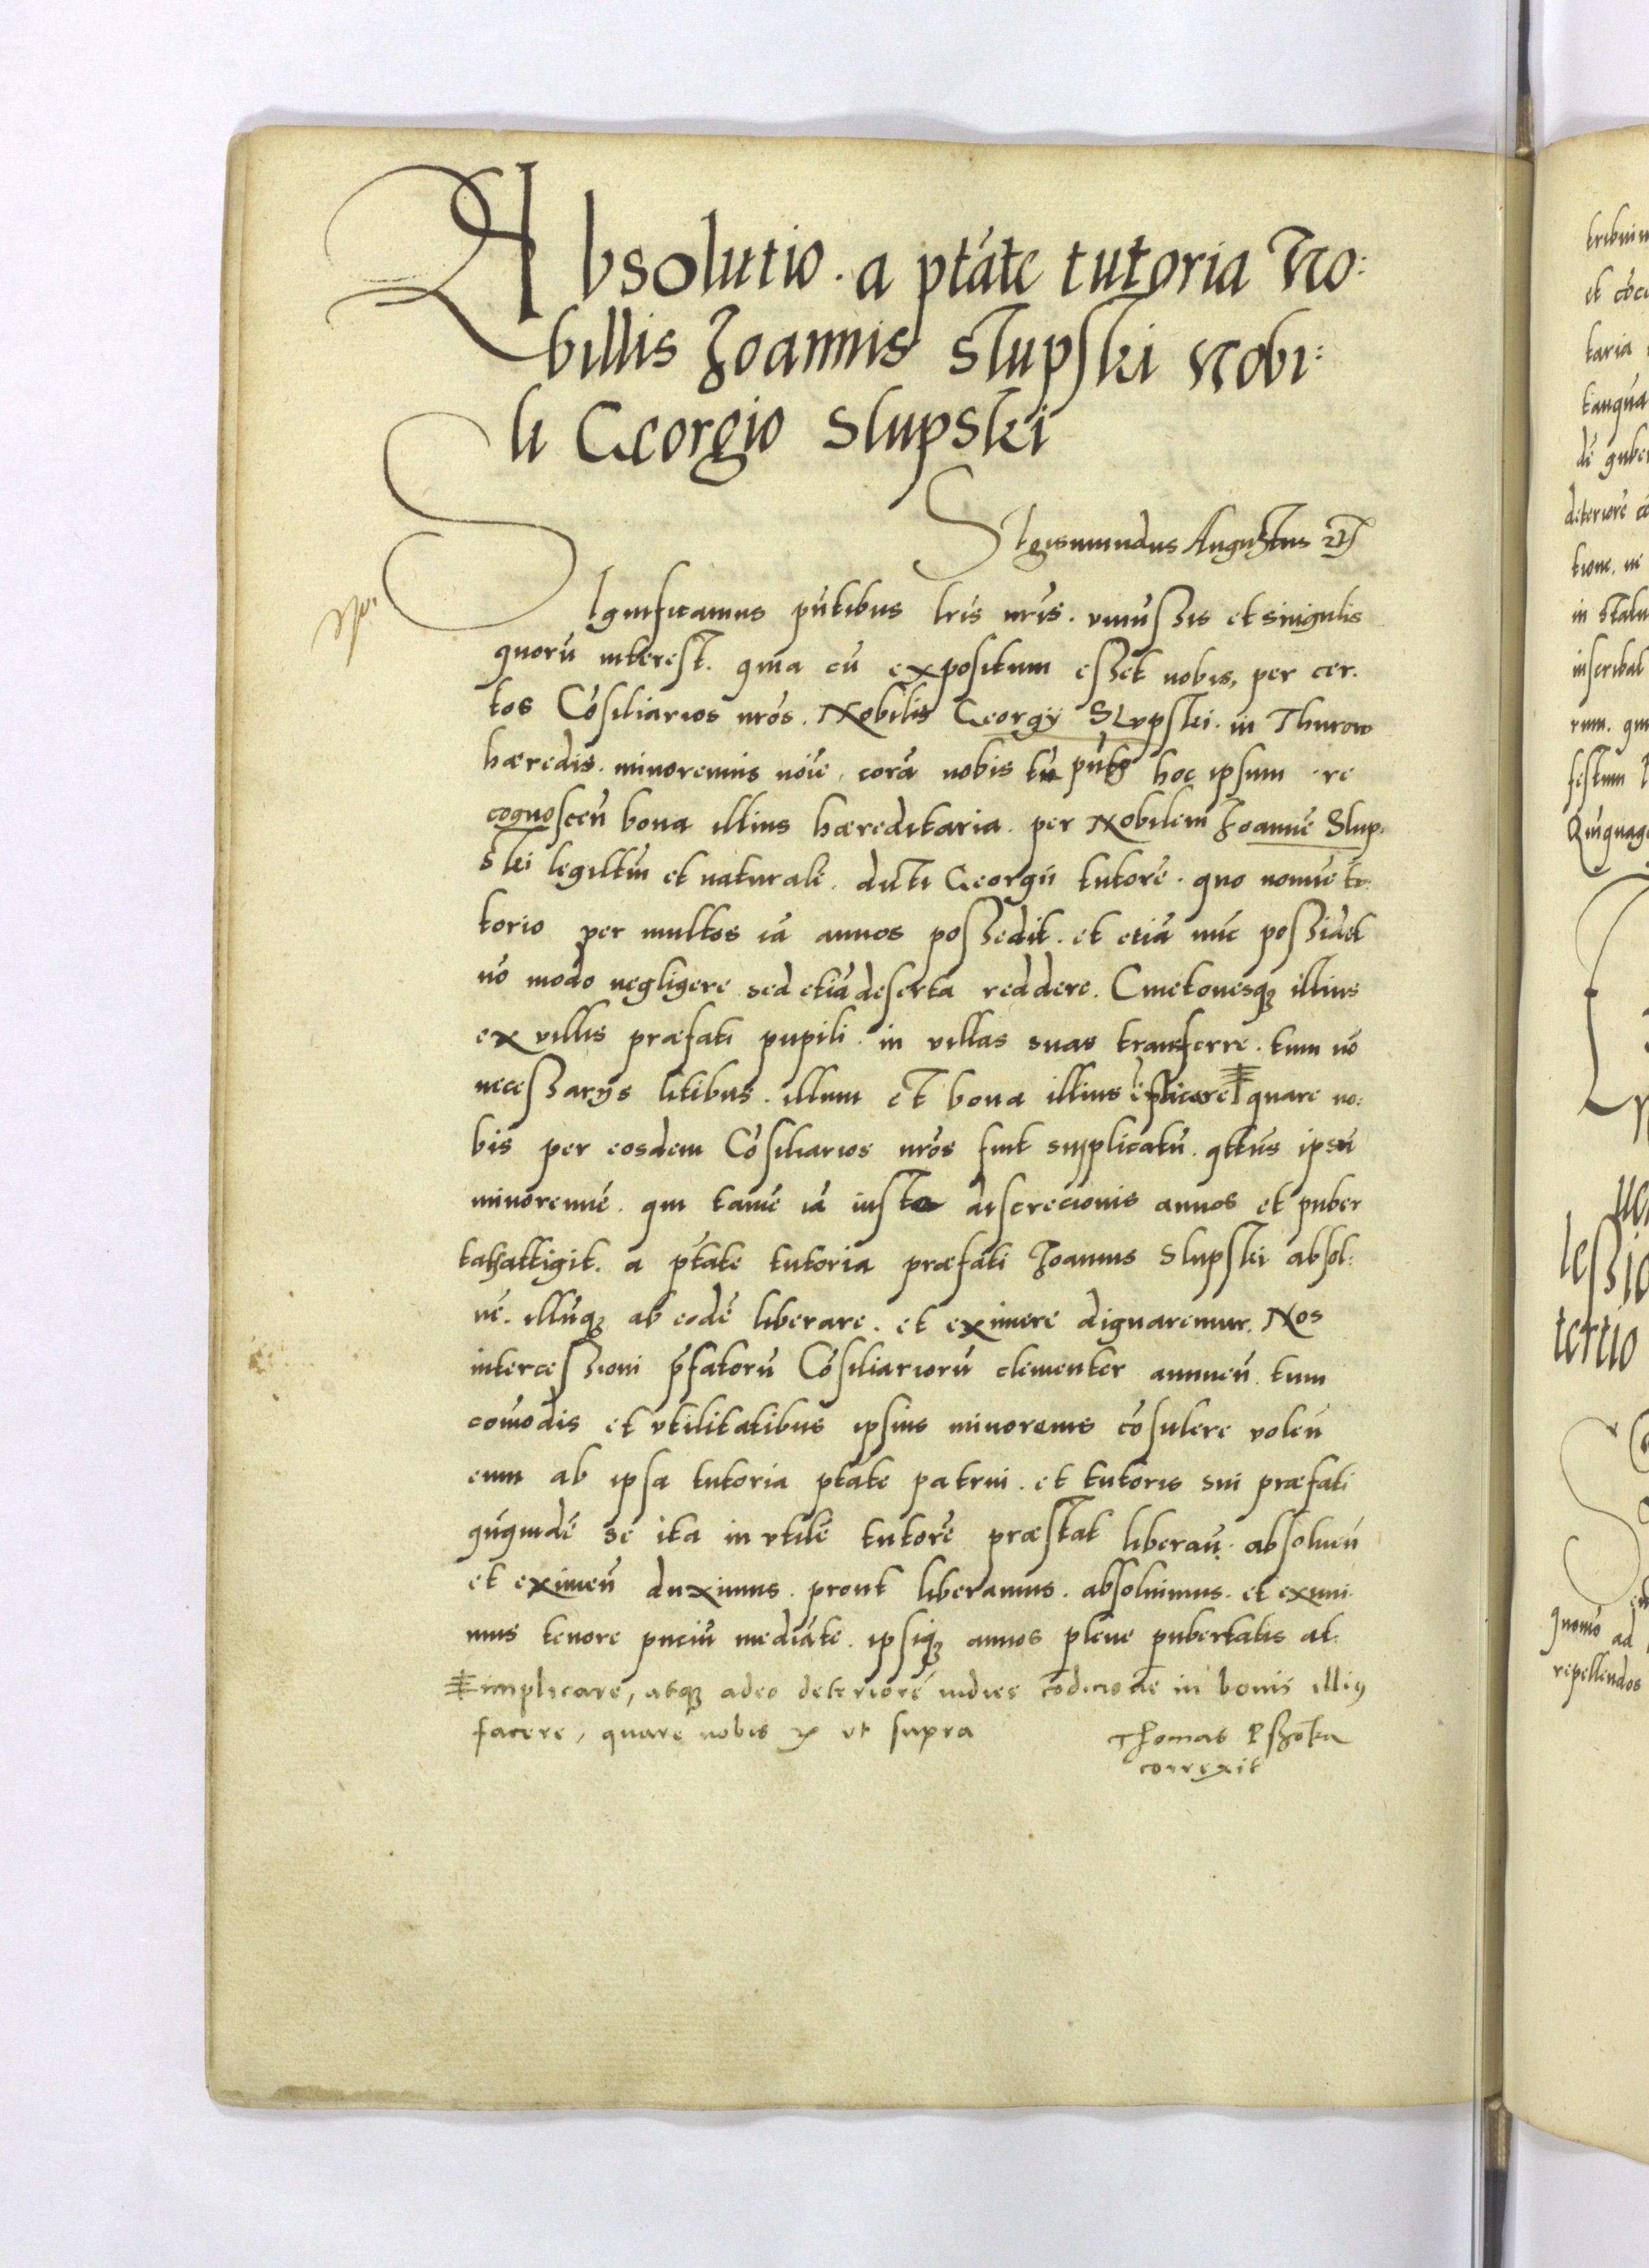 Absolutio. a ptáte tutoria No:
billis Joannis Slupski Nobi:
li Georgio Slupski
Sigismundus Augustus
Significamus pńtibus lris nris. vniussis et singulis
quorū interest. quia cū expositum esset nobis, per cer.
tos Cōsiliarios nros. Nobilis Georgÿ Slvpski. in Thurow
hæredis. minorennis nōie, corā nobis tū hoc ipsum re
cognosceń bona illius hæreditaria. per Nobilem Joannē Slup.
ski legittīm et naturalē. dicti Georgii tutorē. quo nomīe tu:
torio per multos iā annos possedit. et etiā nūc possidet
nō modo negligere sed etiā deserta reddere. Cmetonesqȝ illius
ex villis præfati pupili. in villas suas transferre. tum nō
necessarÿs litibus. illum et bona illius quare no:
bis per eosdem Cōsiliarios nros fuit supplicatū. qtēus ipsū
minorennē. qui tamē iā iusta discrecionis annos et puber
attigit. a ptate tutoria præfati Joannis Slupski absol:
ue. illūqȝ ab eodē liberare. et eximere dignaremur. Nos
intercessioni pfatorū Cōsiliariorū clementer annueń. tum
comodis et vtilitatibus ipsius minorennis cōsulere voleń
eum ab ipsa tutoria ptate patrui. et tutoris sui præfati
qńquidē se ita in vtilē tutorē præstat liberań. absolueń
et eximeń duximus. prout liberamus. absoluimus. et eximi.
mus tenore pnciū mediāte. ipsiqȝ annos plene pubertatis at.
implicare, atqȝ adeo deteriorē indies cōdicionē in bonis illiꝰ
facere, quare nobis ut supra
Thomas Pszoka
correxit